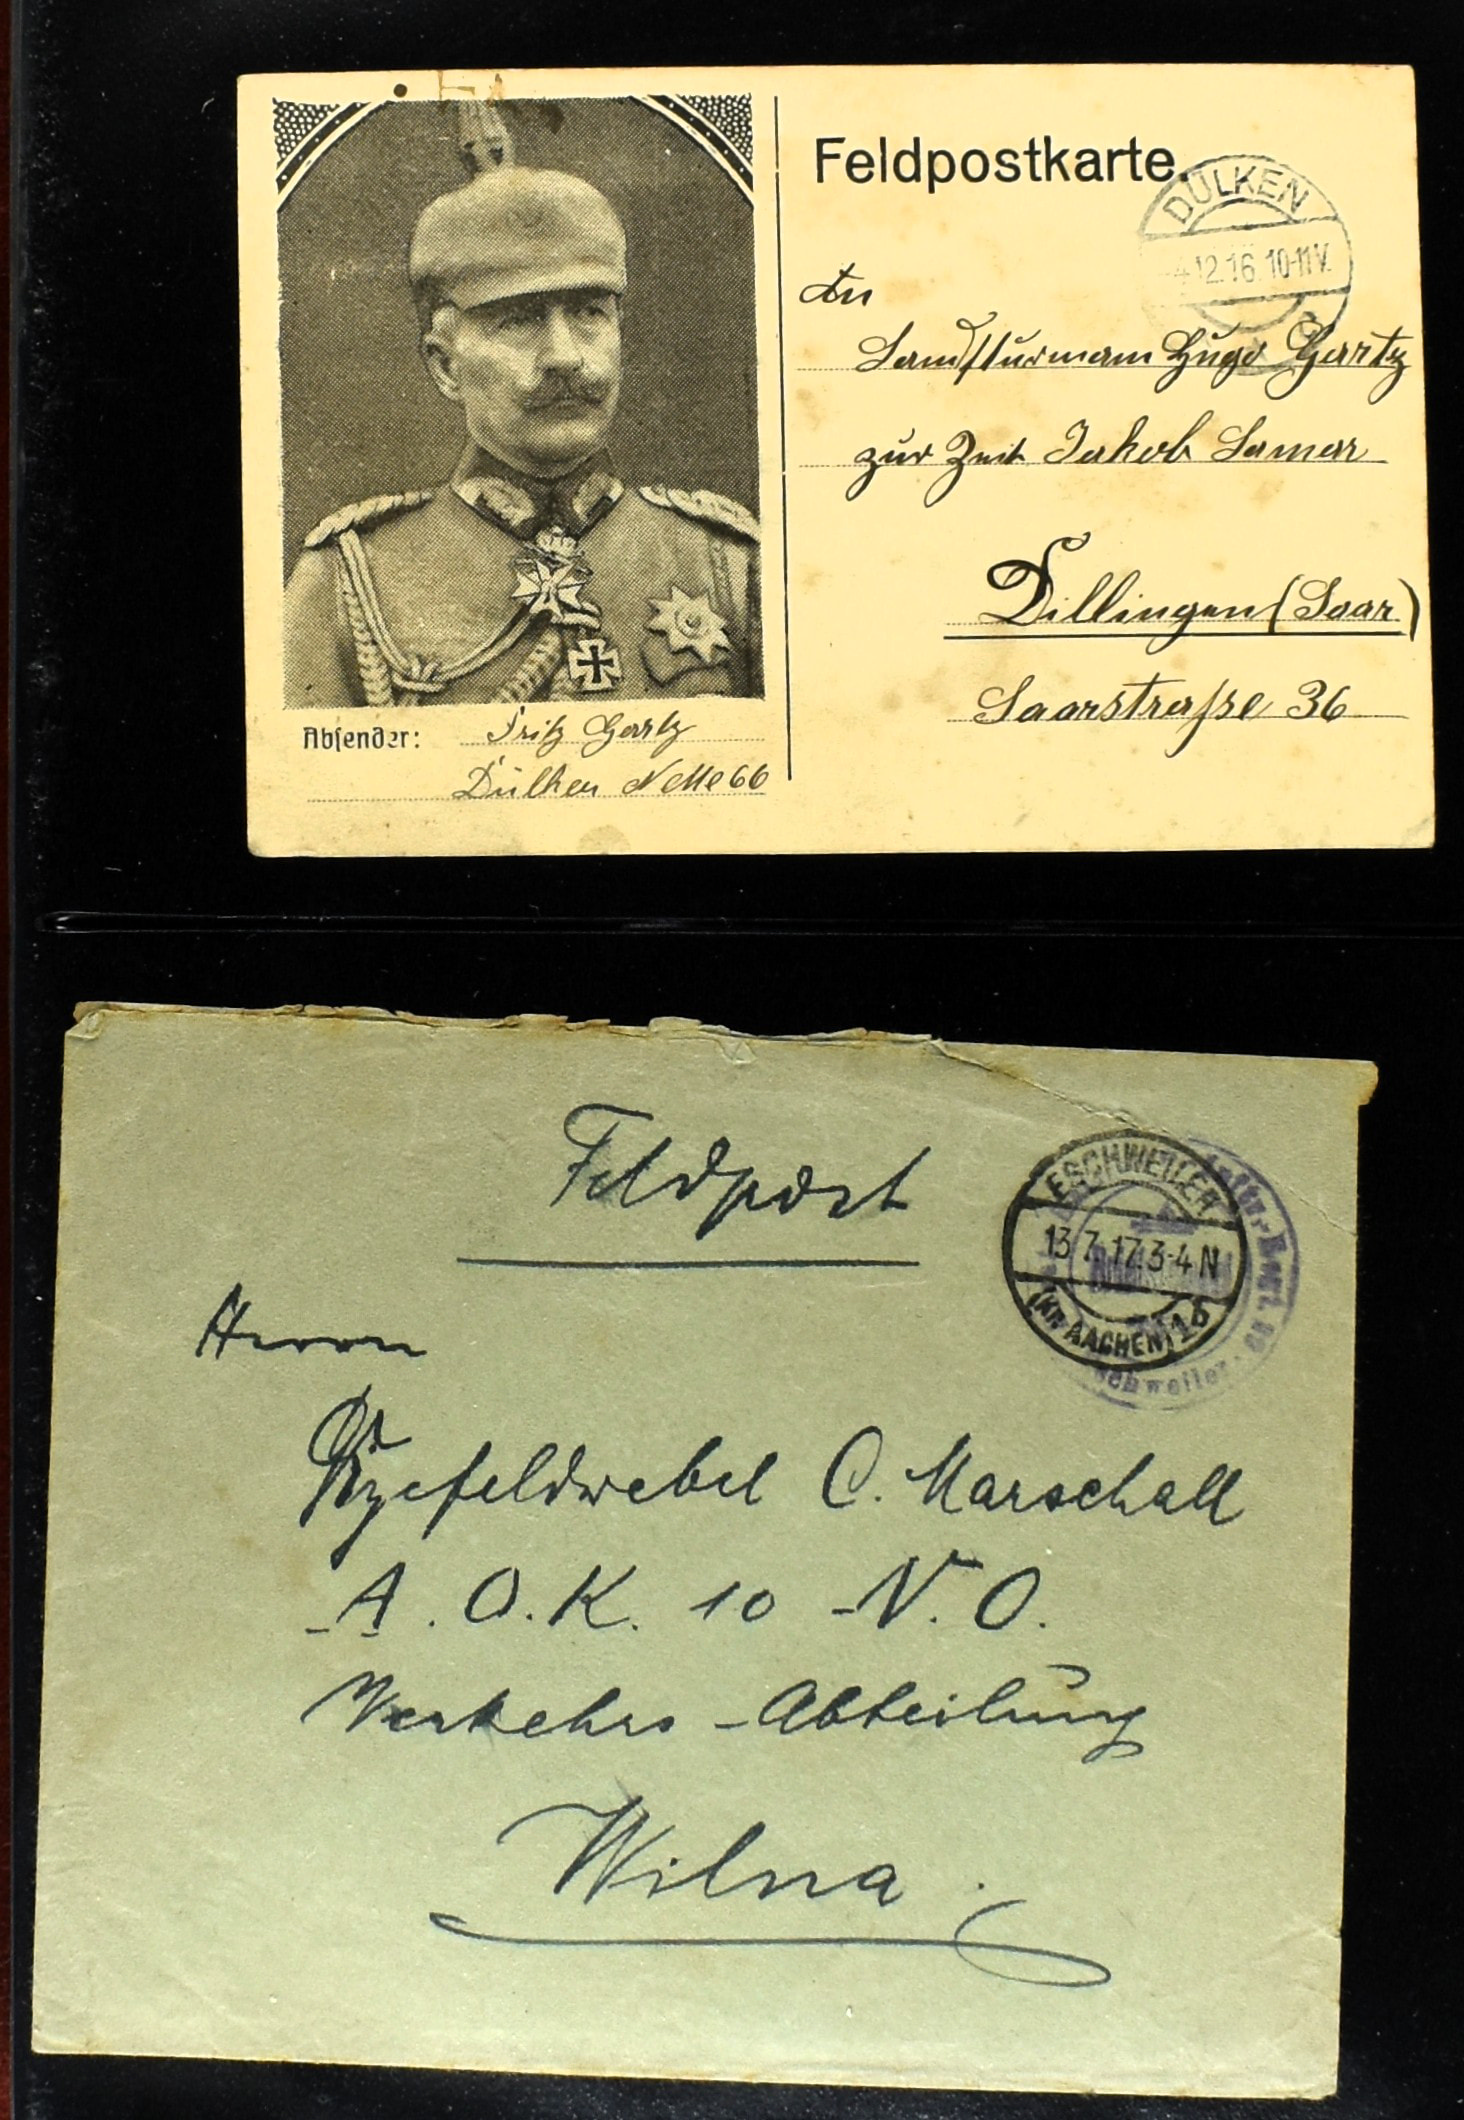 Feldpostkarte.
DÜLKEN
12.16. 10-11V.
An
Landsturmann Hugo Gartz
zur Zeit Jakob Lamar
Dillingen (Saar)
Saarstraße 36
Absender: Fritz Gartz
Dülken Nette 66
Feldpost
ESCHWEILER
13.7.17.3-4N
(KR. AACHEN) 1b
schweiler
Herrn
Vizefeldwebel C. Marschall
A.O.K. 10 - N.O.
Verkehrs-Abteilung
Wilna.